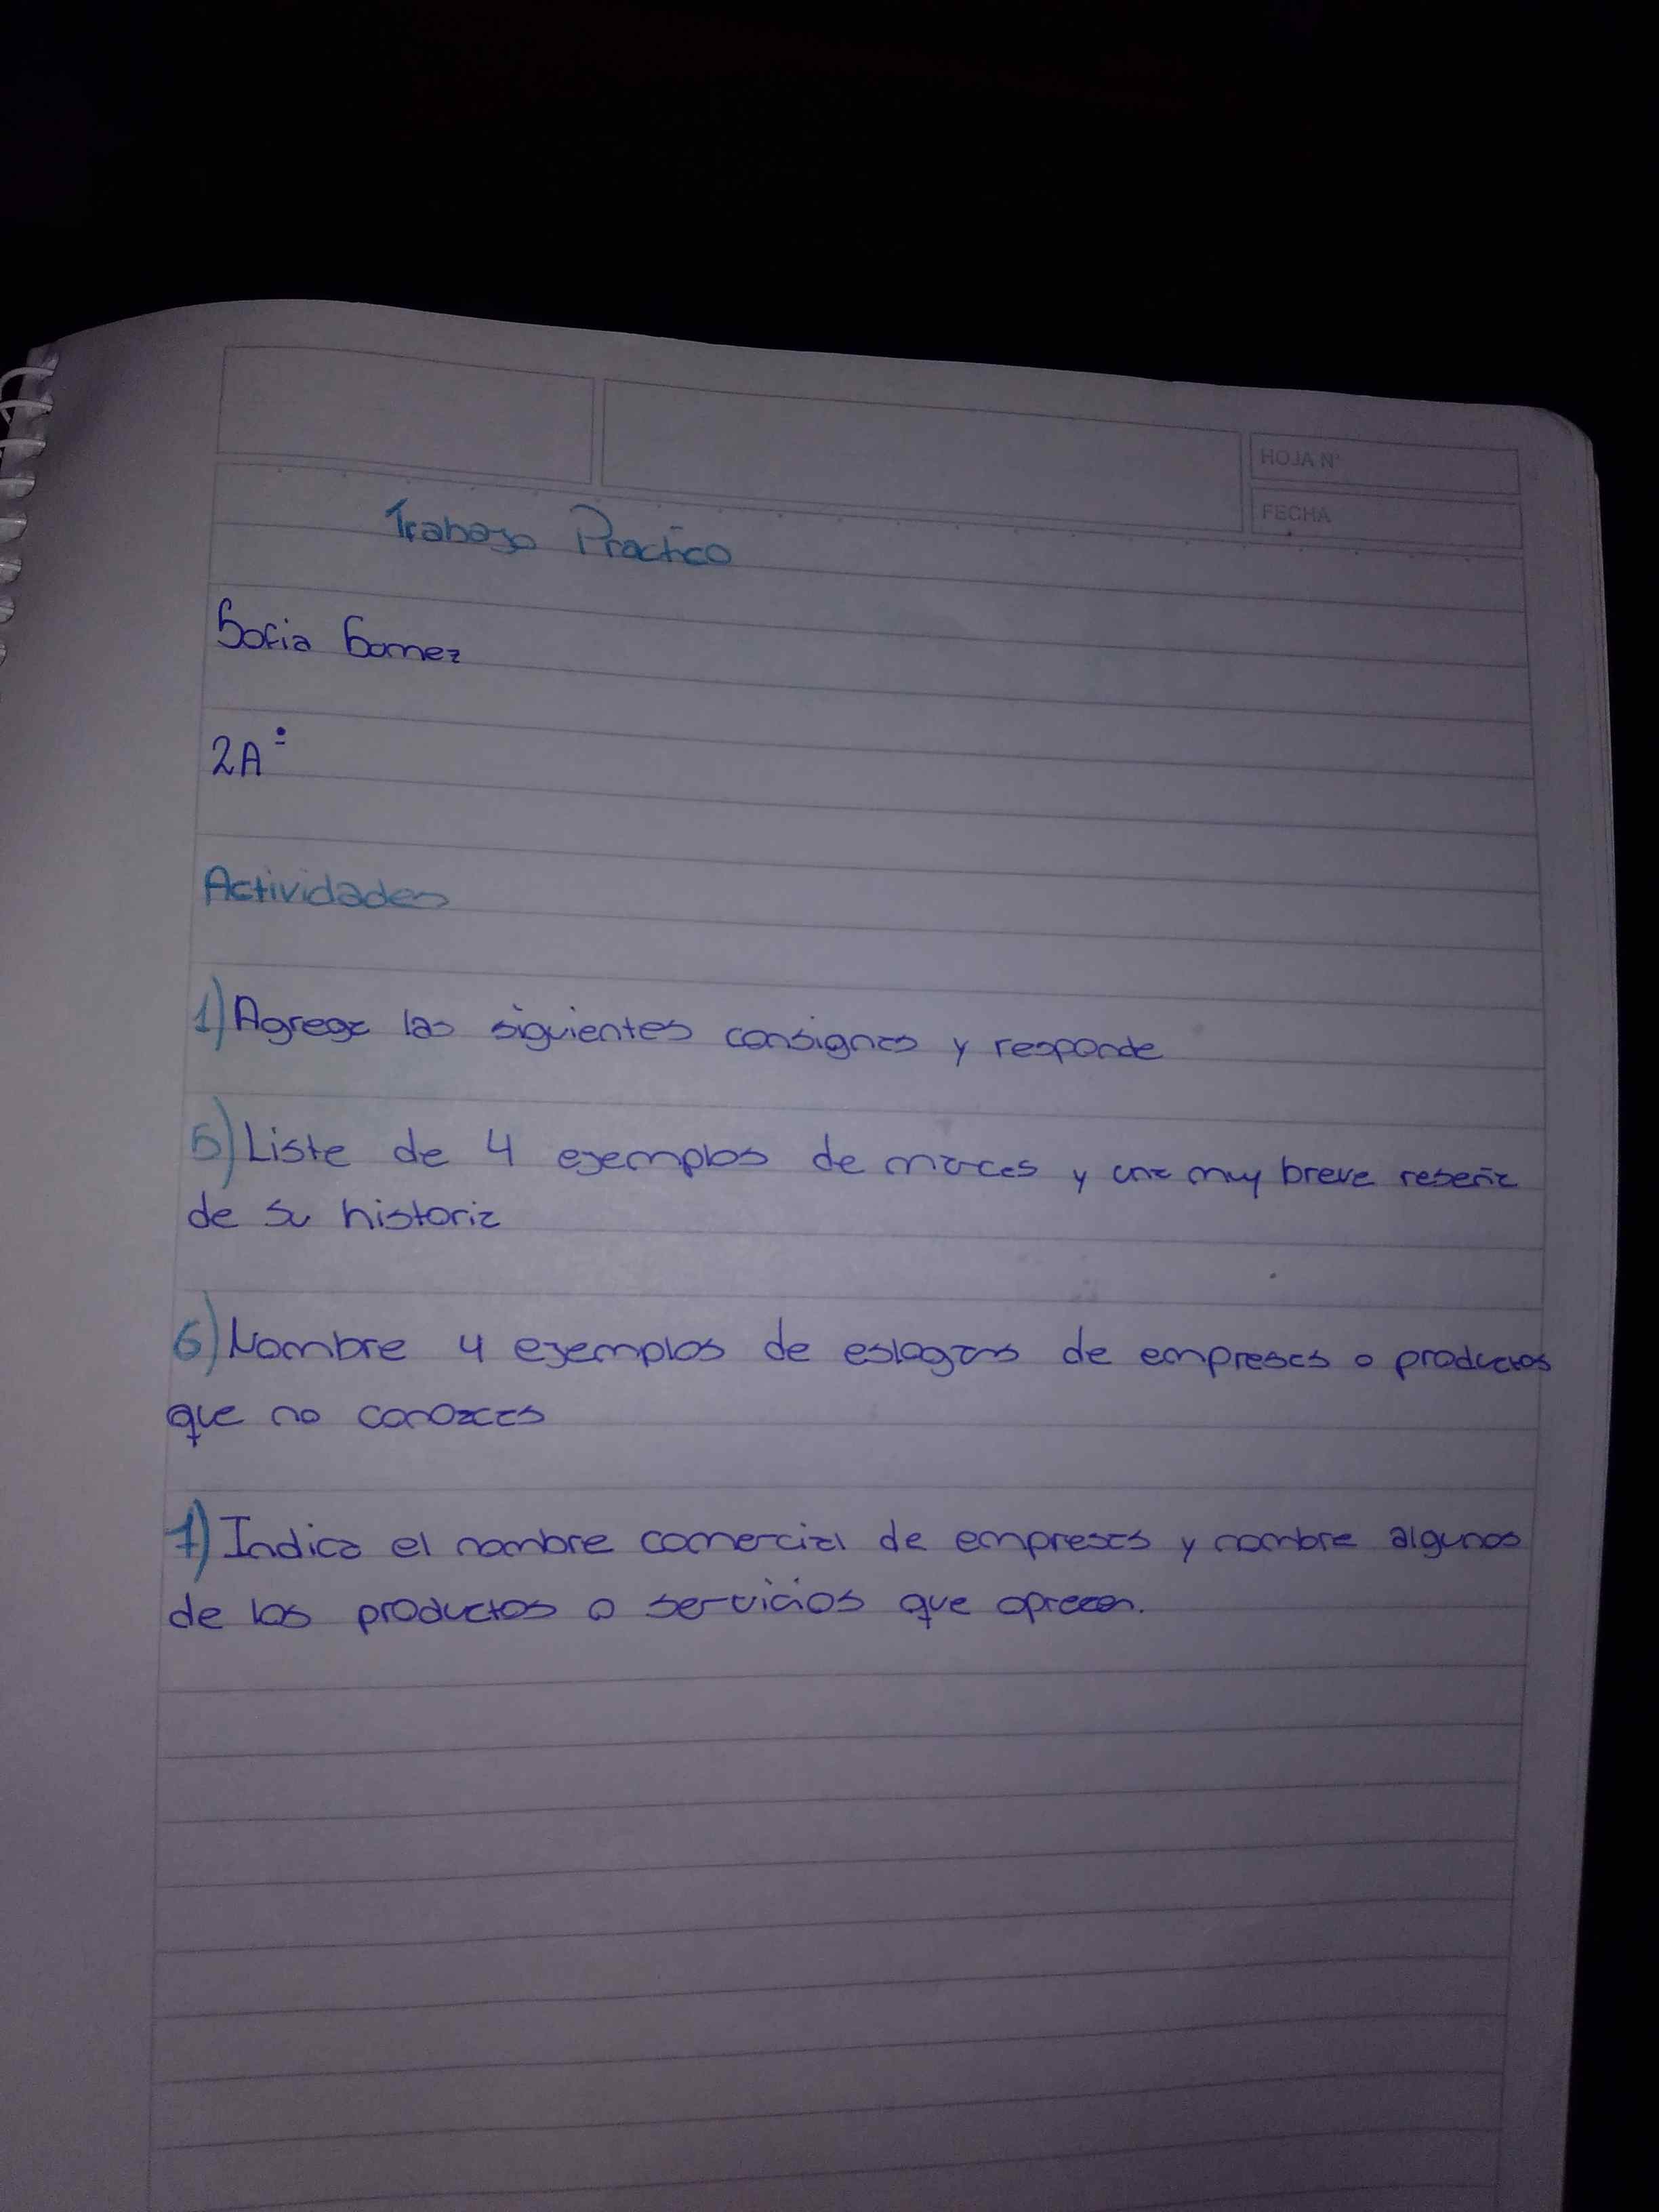 HOJA N°
FECHA
Trabajo Practico
Sofia Gomez
2A°
Actividades
1) Agrega las siguientes consignas y responde
5) Liste de 4 ejemplos de marcas y una muy breve reseña
de su historia
6) Nombre 4 ejemplos de eslogans de empresas o productos
que no conozcas
7) Indica el nombre comercial de empresas y nombre algunos
de los productos o servicios que oprecen.